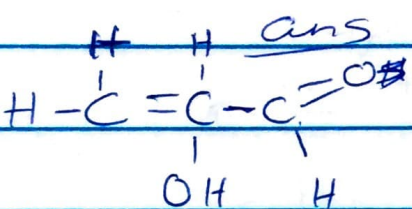 H H ans
H - C = C - C = O
OH H